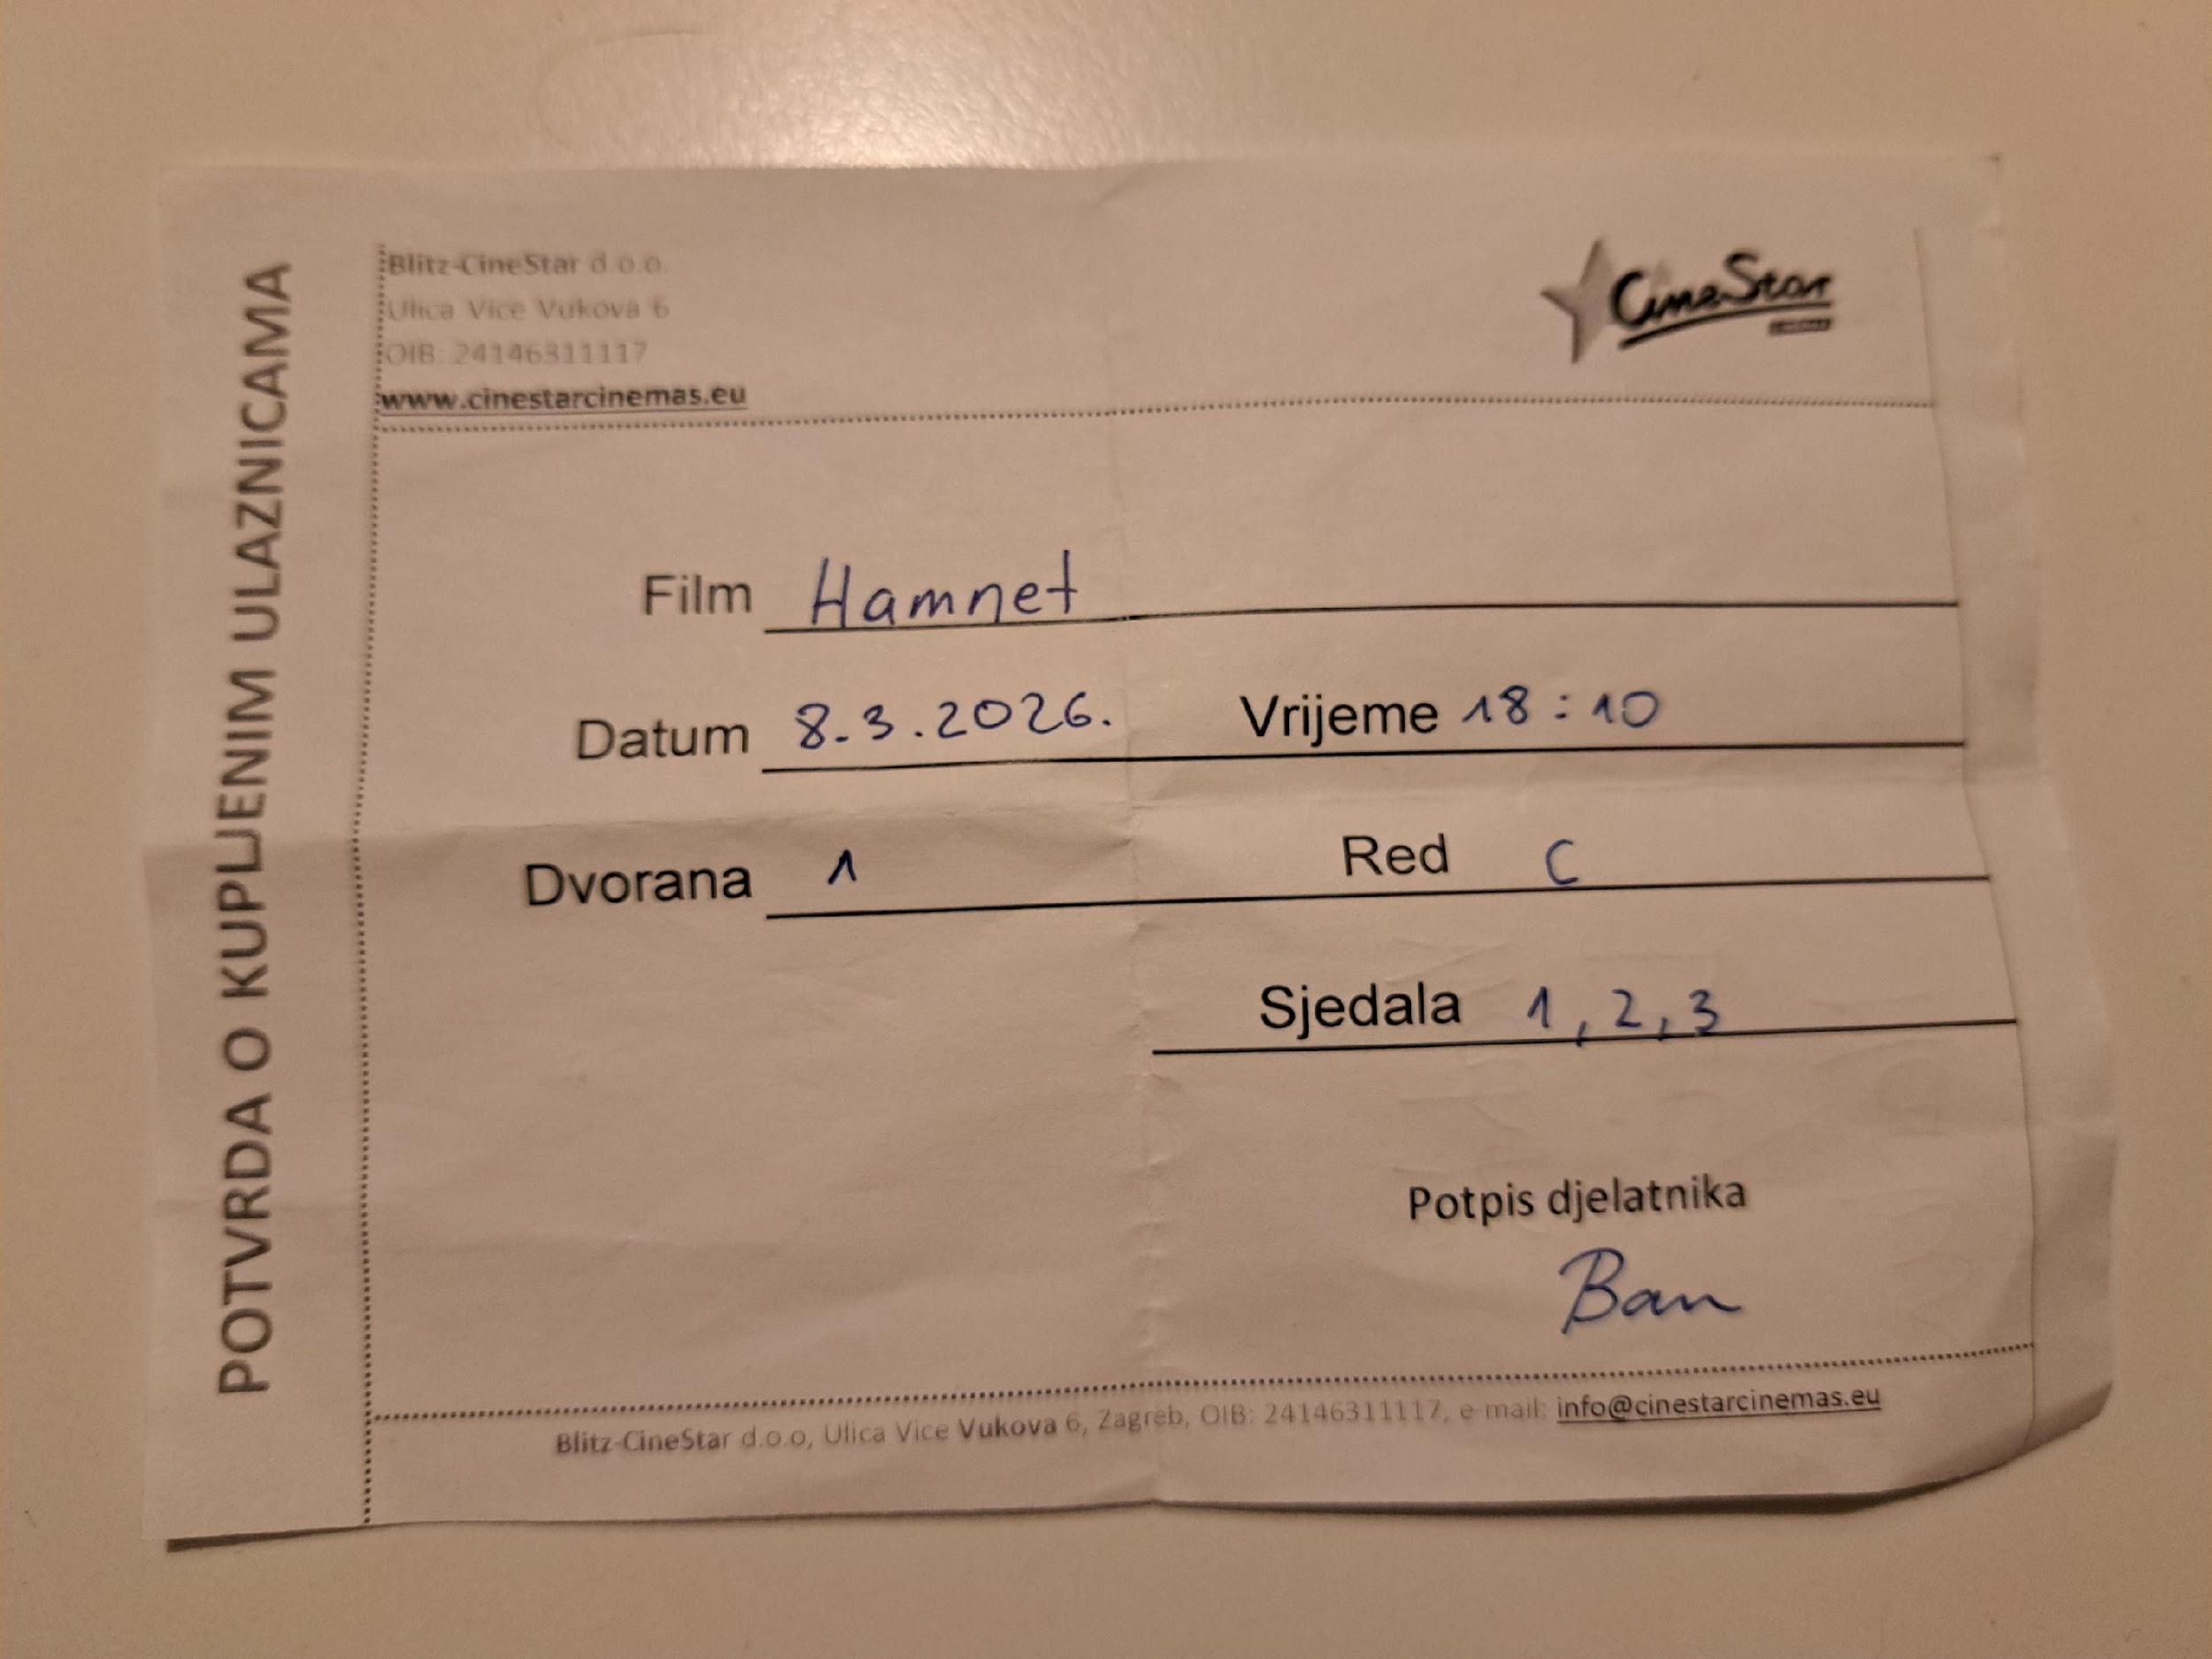 POTVRDA O KUPLJENIM ULAZNICAMA
Blitz-CineStar d.o.o.
Ulica Vice Vukova 6
OIB: 24146311117
www.cinestarcinemas.eu
CineStar
Film Hamnet
Datum 8.3.2026. Vrijeme 18:10
Dvorana 1 Red C
Sjedala 1, 2, 3
Potpis djelatnika
Ban
Blitz-CineStar d.o.o, Ulica Vice Vukova 6, Zagreb, OIB: 24146311117, e-mail: info@cinestarcinemas.eu